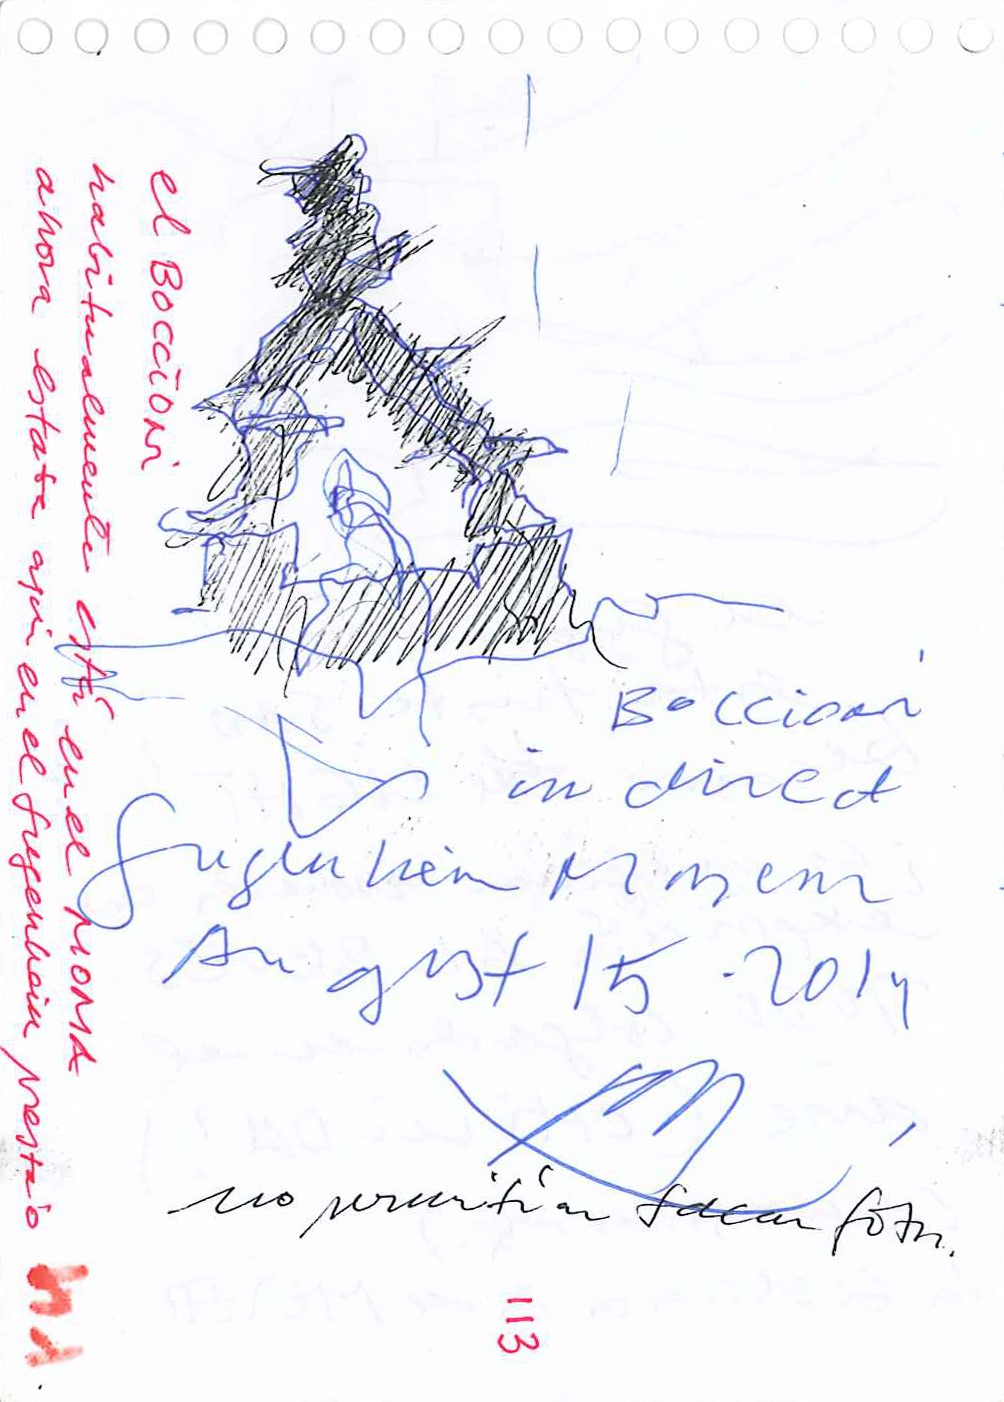 el BOCCIONI
habitualmente está en el MOMA
ahora estaba aquí en el Gugenheim prestao
Boccioni
in direct
Gugenheim Museum
August 15 - 2014
no permitían sacar foto.
113